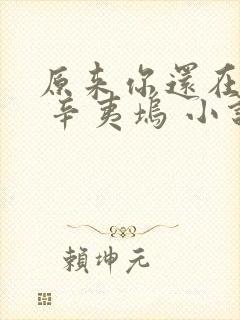 原来你還在
辛夷塢 小説
賴坤元